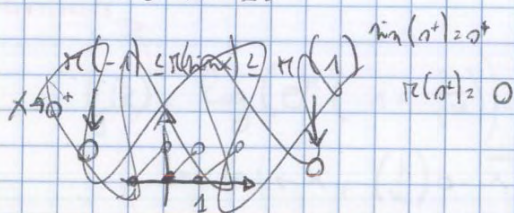 π(-1) ≤ π(sinx) ≤ π(1)
sin(0⁺)=0⁺
x→0⁺
π(0⁺)= 0
1